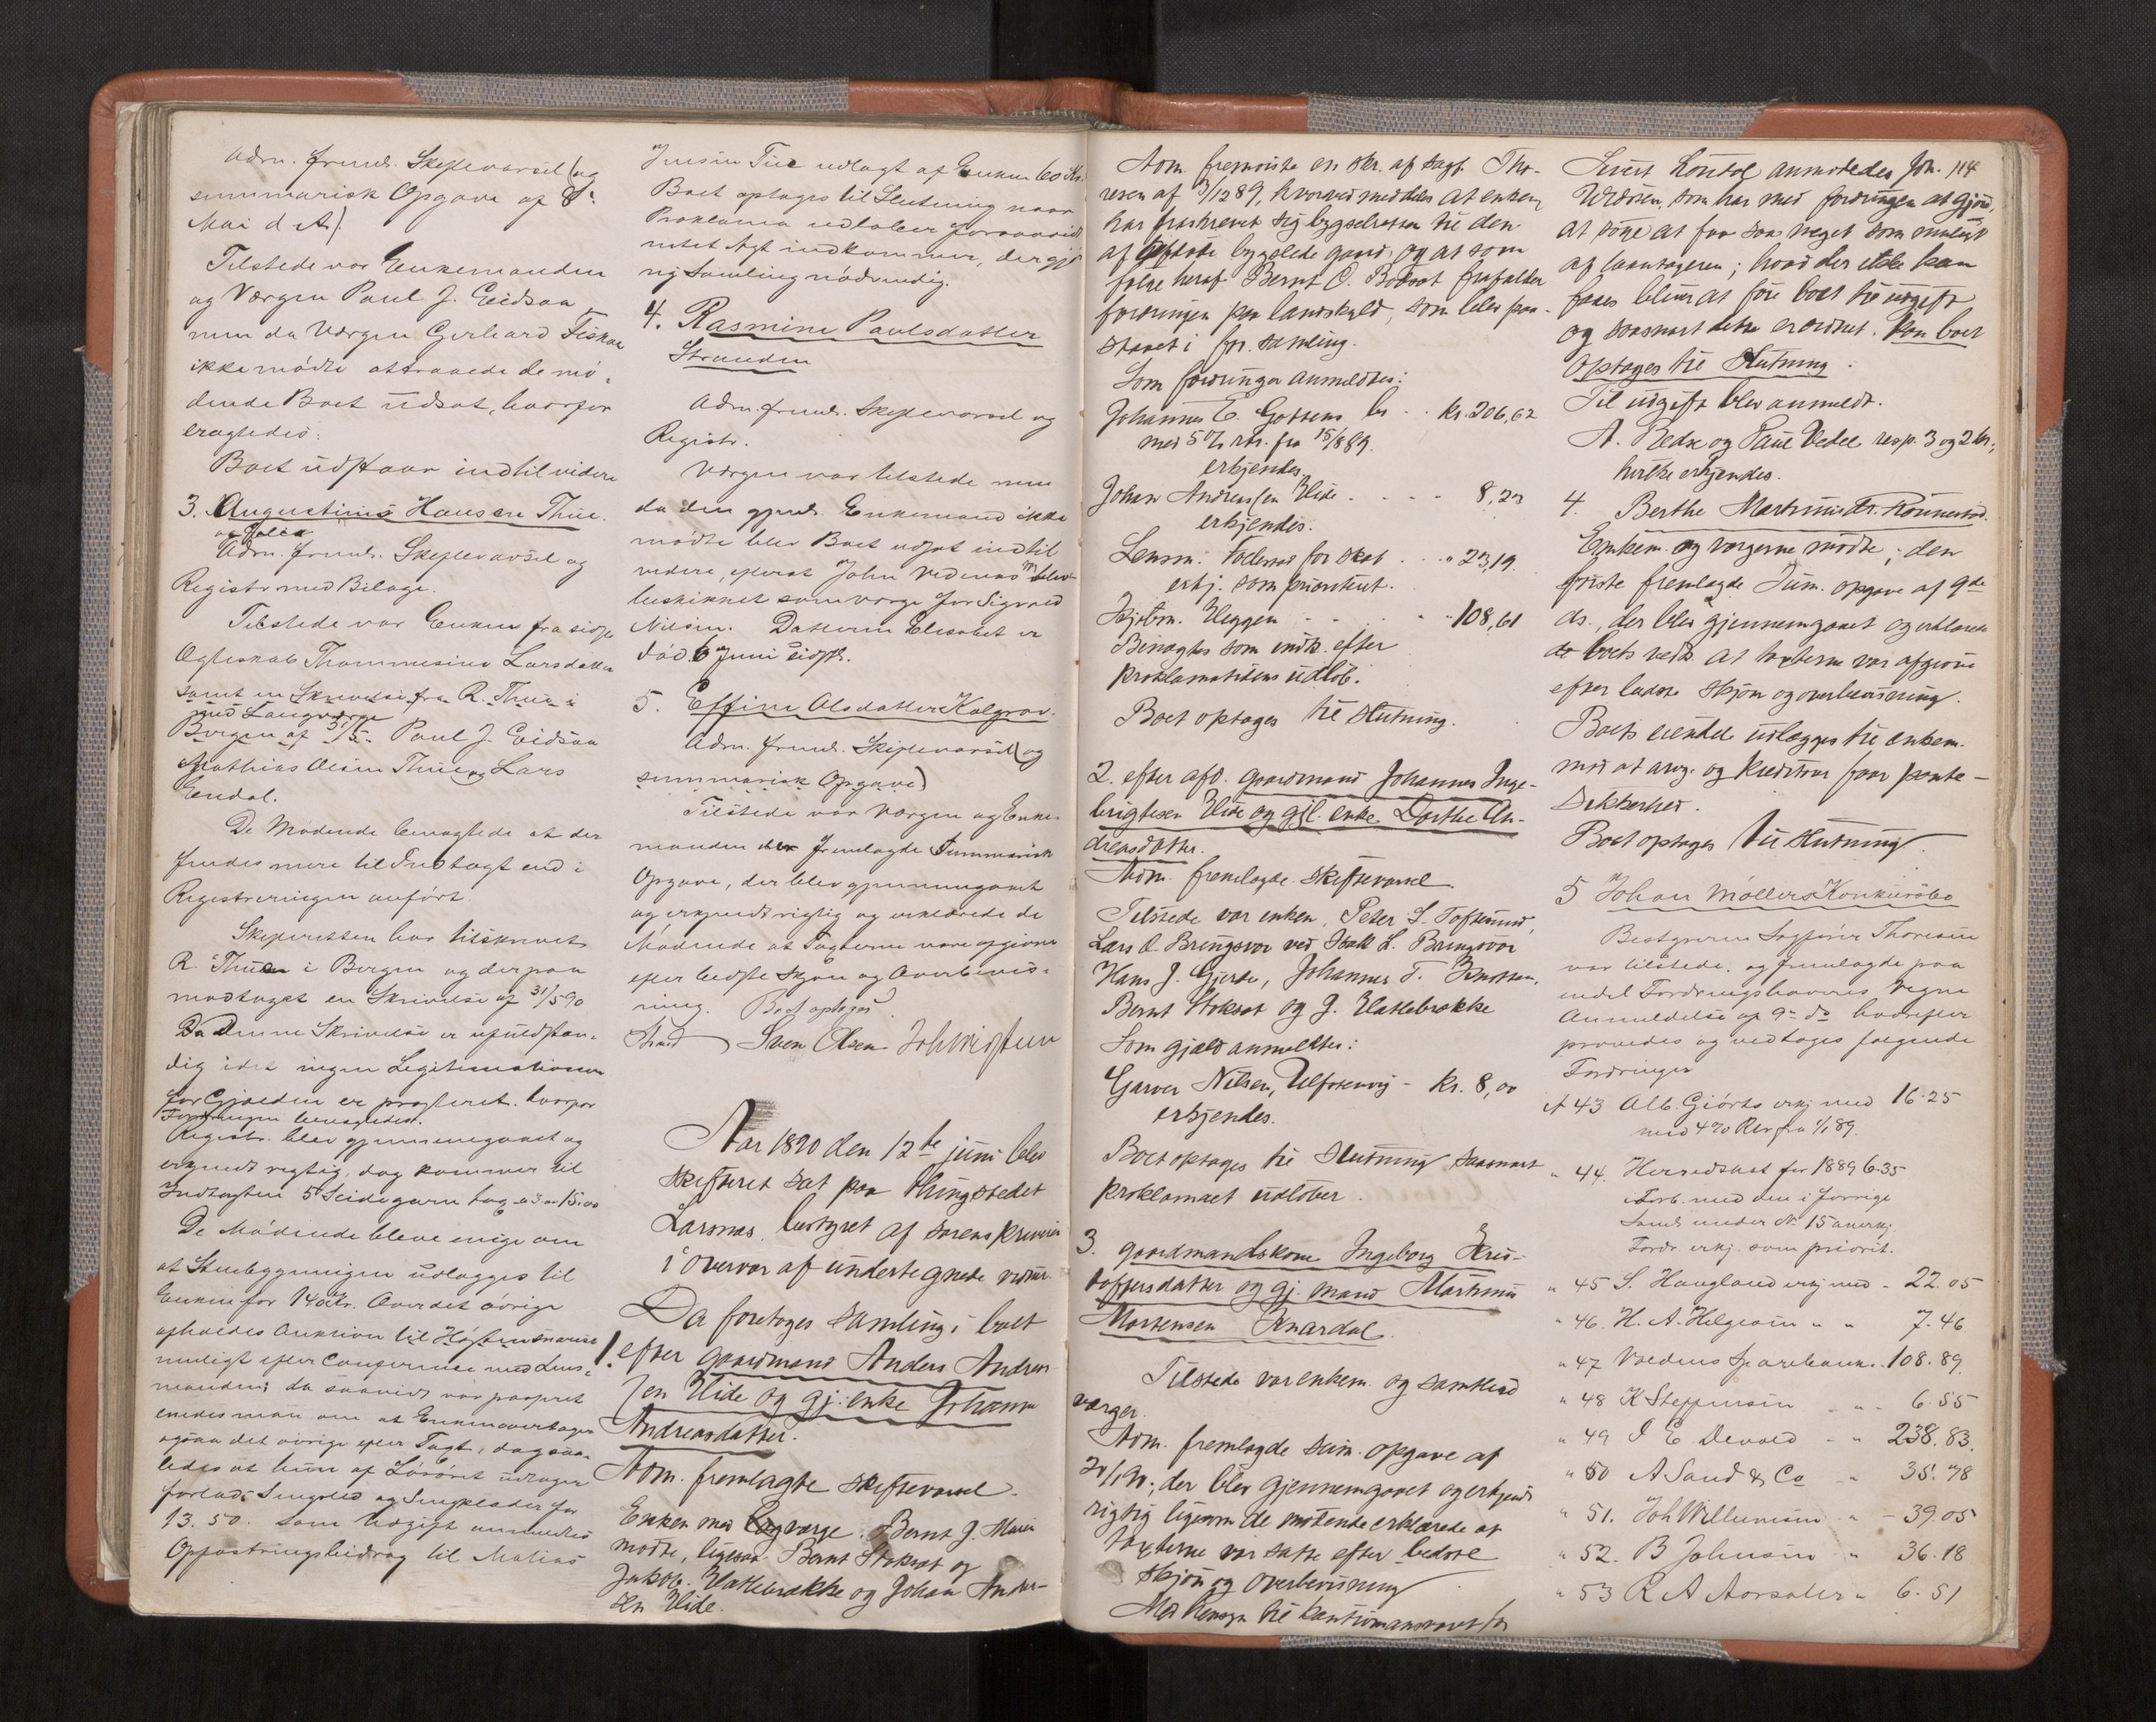 Adm. freml. Skiftevarsel (og
summarisk Opgave af 8de
Mai d. A.)
Tilstede var Enkemanden
og Værgen Paul J. Eidsaa
men da Værgen Gerhard Fiskaa
ikke mødte attraaede de mø-
dende Boet udsat, hvorfor
eragtedes:
Boet udstaar indtil videre
3. Augustinus Hansen Thue.
Adm. freml. Skiftevarsel og
Registr. med Bilage.
Tilstede var Enken fra sidste
Ægteskab Thommesine Larsdatter
samt en Skrivelse fra R. Thue i
med Laugværge
Bergen af 31/5. Paul J. Eidsaa
Mathias Olsen Thue og Lars
Eendal.
De Mødende benegtede at der
findes mere til Indtægt end i
Registreringen anført.
Skifteretten har tilskrevet
R. Thue i Bergen og derpaa
modtaget en Skrivelse af 31/5 90
Da denne Skrivelse er ufuldstæn-
dig idet ingen Legitimationer
for Gjælden er præsteret, hvorfor
Fordringen benegtedes.
Registr. blev gjennemgaaet og
erkjendt rigtig, dog kommer til
Indtægten 5 Seidegarn tax. a 3 = 15.00
De Mødende bleve enige om
at Stuebygningen udlægges til
Enken for 140 Kr. Over det øvrige
afholdes Auktion til Høsten snarest
muligt efter Conference med Lens-
manden; da saavidt var passeret
enedes man om at Enken overtager
ogsaa det øvrige efter Taxt, dog saa-
ledes at hun af Løsøret udtager
forlods Sengsted og Sengklæder for
13.50. Som Udgift anmeldtes
Opfostringsbidrag til Matias
Jensen Tue udlagt af Enken 60 Kr.
Boet optages til Slutning naar
Proklama udløber forsaavidt
intet Nyt indkommer, der gjør
ny Samling nødvendig.
4. Rasmine Paulsdatter
Stranden
Adm. freml. Skiftevarsel og
Registr.
Værgen var tilstede men
da den gjenl. Enkemand ikke
mødte blev Boet udsat indtil
videre, efterat John Vedenes blev
beskikket som værge for Sigvald
Nilsen. Datteren Elisabet er
død 6 Juni sidstl.
5. Effine Olsdatter Kalgrav.
Adm. freml. Skiftevarsel (og
summarisk Opgave)
Tilstede var Værgen og Enke-
manden der fremlagde Summarisk
Opgave, der blev gjennemgaaet
og erkjendt rigtig og erklærede de
Mødende at Taxterne vare afgivne
efter bedste Skjøn og Overbevis-
ning. Boet optages
Sven Olsen
Aar 1890 den 12te juni blev
skifteret sat paa thingstedet
Larsnæs, bestyret af sorenskriveren
i overvær af undertegnede vidner.
Da foretoges samling i boet
1. efter gaardmand Anders Andrea-
sen Hide og gj. enke Johanne
Andreasdatter.
Adm. fremlagte skiftevarsel.
Enken med Lagværge Bernt J. Moren
mødte, ligesaa Bernt Stoksat og
Jakob Hatlebrække og Johan Andrea-
sen Hide.
Adm. fremviste en skr. af sagf. Tho-
resen af 3/12 89, hvorved meddeles at enken
har fraskrevet sig bygselretten til den
af afdøde bygslede gaard, og at som
følge heraf Bernt O. Bodsat frafalder
fordringen paa landskyld, som blev paa-
staaet i for. samling.
Som fordringer anmeldtes:
Johannes E. Gotsens bo . . kr. 206,62
med 5 % rtr. fra 15/8 89.
erkjendes.
Johan Andreassen Hide . . . . 8,20
erkjendes.
Lensm. Follestad for skat . . " 23,19.
erkj. som prioritert.
Skjelbr. Heggen . . . " 108,61
Benægtes som indk. efter
Proklamatidens udløb.
Boet optages til slutning.
2. efter afd. gaardmand Johannes Inge-
brigtsen Hide og gjl. enke Dorthe An-
dreasdatter.
Adm. fremlagde skiftevarsel.
Tilstede var enken, Peter S. Toftesund,
Lars O. Bringsvor ved Isak L. Bringsvor
Hans J. Gjerde, Johannes T. Knotten,
Bernt Stoksat og J. Hatlebrække
Som gjæld anmeldtes:
Garver Nilsen, Ulfstenvig - kr. 8,00
erkjendes.
Boet optages til slutning saasnart
proklamaet udløber.
3. gaardmandskone Ingeborg Kris-
toffersdatter og gj. mand Martinus
Mortensen Knardal.
Tilstede var enkem. og samtlige
værger.
Adm. fremlagde sum. opgave af
20/1 90, der blev gjennemgaaet og erkjendt
rigtig ligesom de mødende erklærede at
taxterne var satte efter bedste
skjøn og overbevisning
Med hensyn til kautionsansvaret for
Sivert Loutel anmodedes Joh. 114
som har med fordringen at gjøre,
at søge at faa saa meget som muligt
af laantageren; hvad der ikke kan
faaes bliver at føre boet til udgift
og saasnart dette er ordnet, kan boet
optages til slutning.
Til udgift blev anmeldt.
A. Redse og Paul Vedel resp. 3 og 2 kr.,
hvilke erkjendes.
4. Berthe Martinusdtr. Rønnestad.
Enkem. og værgerne mødte; den
første fremlagde Sum. opgave af 9de
ds., der blev gjennemgaaet og erklærede
de boets vedk. at taxterne var afgivne
efter bedste skjøn og overbevisning.
Boets eiendele udlægges til enkem.
mod at arv. og kreditorer faar pante-
sikkerhed.
Boet optages til slutning.
5 Johan Møllers Konkursbo
Bestyreren Sagfører Thoresen
var tilstede, og fremlagde paa
endel Fordringshaveres Vegne
Anmeldelse af 9de ds hvorefter
prøvedes og vedtoges følgende
Fordringer
№ 43 Alb. Giørtz erkj. med 16.25
med 4 % Rtr fra 1/1 89.
" 44. Herredskat for 1889 6.35
i Forb. med den i forrige
Saml. under № 15 anerkj.
Fordr. erkj. som priorit.
" 45 S. Haugland erkj med - 22.05
" 46. H. A. Helgesen " " 7.46
" 47 Voldens Sparebank . 108.89
" 48 K Steffensen " - 6.55
" 49 O E Devold - " 238.83.
" 50 A Sand & Co - " 35.78
" 51. Joh Willumsen " - 39.05
" 52. B Johnsen " 36.18
" 53 R A Aarsæter " 6.51